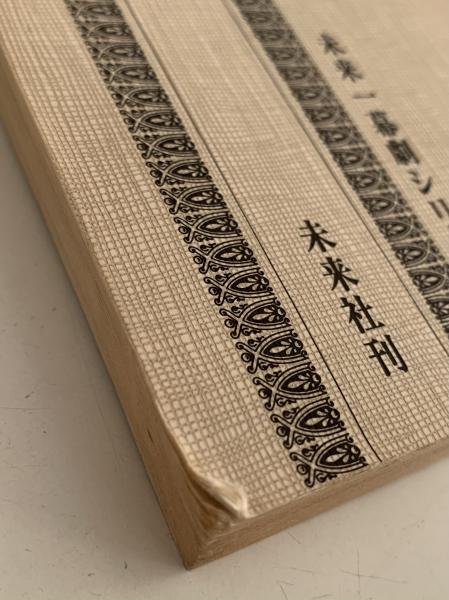 未来一幕劇シリ
未来社刊